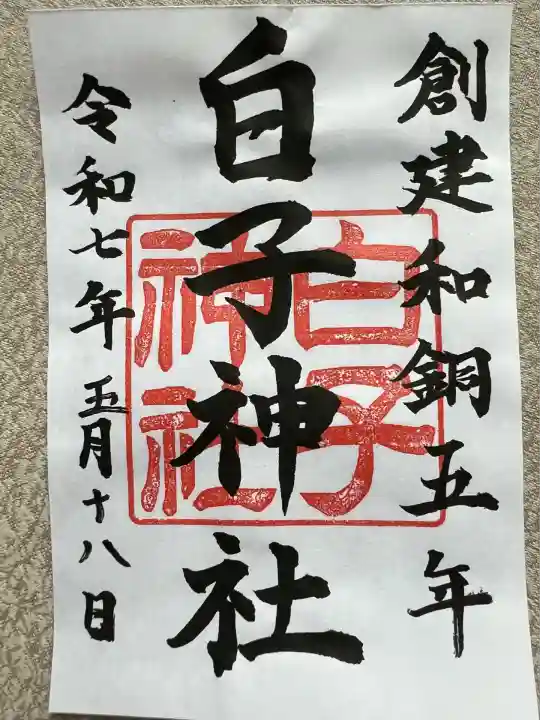 創建和銅五年
白子神社
白子
神社
令和七年五月十八日